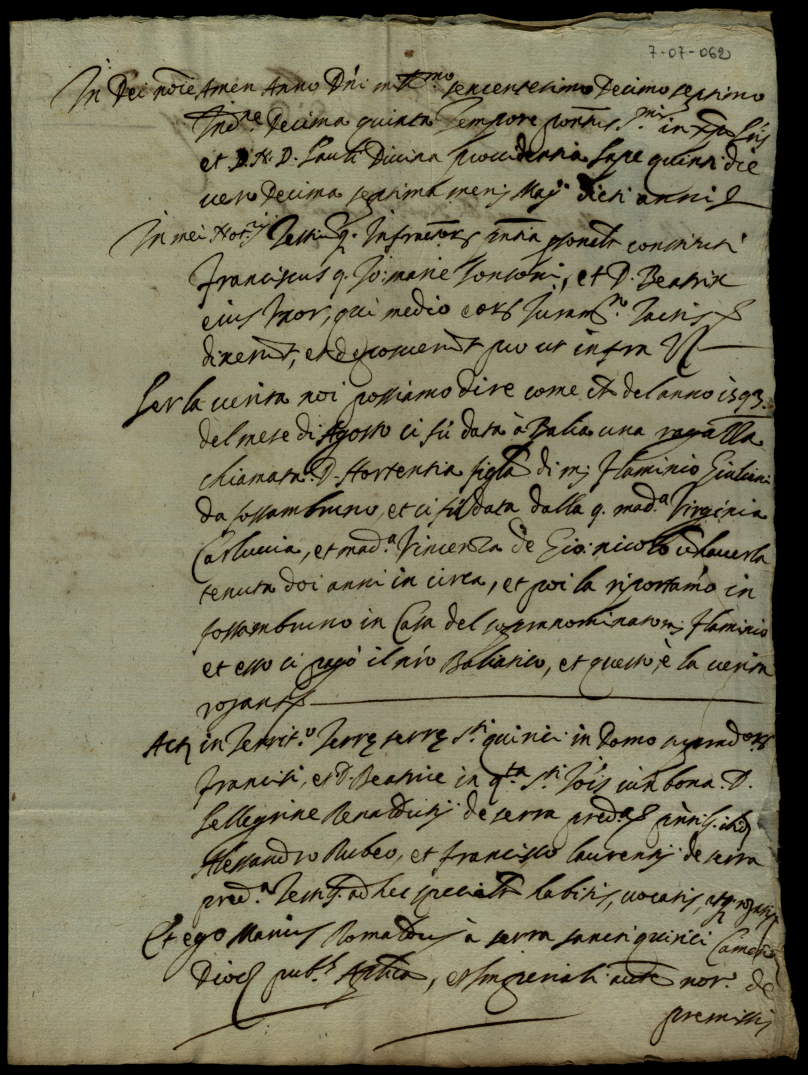 7-07-062
In Dei noie Amen Anno Dni mill.mo sexcentesimo Decimo septimo
Ind.ne Decima quinta Tempore pontus. s.mi in xpo pris
et D. N. D. Pauli Divina providentia Pape quinti die
vero Decima septima mens Maij dicti anni
In mei Not.ij Testiu q. Infractors pntia psonalr constituti
Franciscus q. Jo: marie et D. Beatrix
eius Uxor, qui medio eors Juram.to Tactis
dixerut, et deposuerut pro ut infra
Per la verita noi possiamo dire come del anno 1593.
del mese di Agosto ci fu data à Balia una ragazza
chiamata D. Hortentia figla di m; Flaminio Giuliani
da fossambruno, et ci fu data dalla q. mad.a Virginia
Carluccia, et mad.a Vincenza de Gio: nicolo haverla
tenuta doi anni in circa, et poi la riportamo in
fossambruno in Casa del sopranominato m; Flaminio
et esso ci pagò il nro Baliatico, et questo è la verita
rogant
Act in Territ.o Terrę serrę S.ti quirici in Domo suprad.ors
Francisci, et D. Beatrice in q.ta S.ti Jois iux bona D.
Pellegrine de serra pred.a pntib. ibid
Alessandro Rubeo, et Francisco laurentij de serra
pred.a Testib. ad hec specialr habitis, vocatis, atq rogatis
Et ego Marius Romaldus à serra sancti quirici Camerin
Dioc pub.s Aplica, et Imperiali auct.e not.s de
premissis